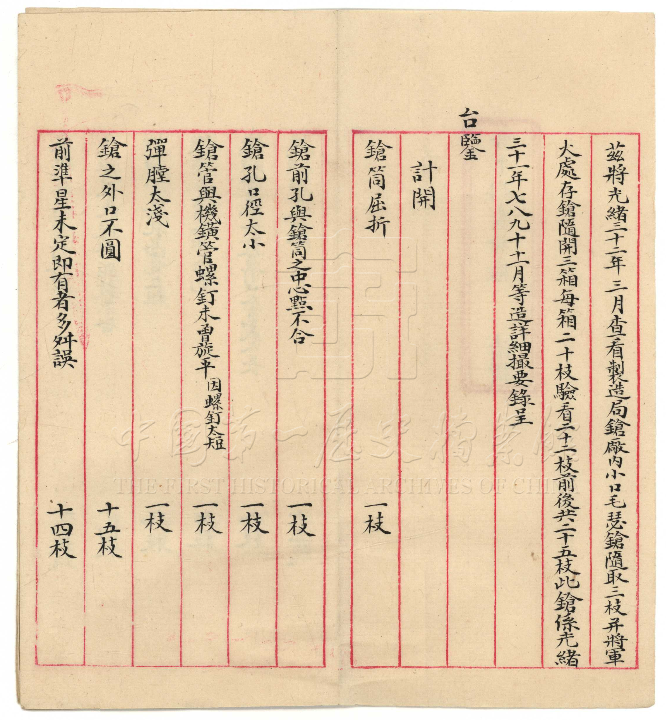 茲將光緒三十二年三月查看製造局鎗廠內小口毛瑟鎗隨取三枝並將軍
火處存鎗隨開三箱每箱二十枝驗看二十二枝前後共二十五枝此鎗係光緒
三十一年七八九十十一月等造詳細撮要錄呈
台鑒
計開
鎗筒屈折 一枝
鎗前孔與鎗筒之中心點不合 一枝
鎗孔口徑太小 一枝
鎗管與機鐄管螺釘未曾旋平因螺釘太短 一枝
彈膛太淺 一枝
鎗之外口不圓 十五枝
前準星未定即有者多舛誤 十四枝
中國第一歷史檔案館
THE FIRST HISTORICAL ARCHIVES OF CHINA